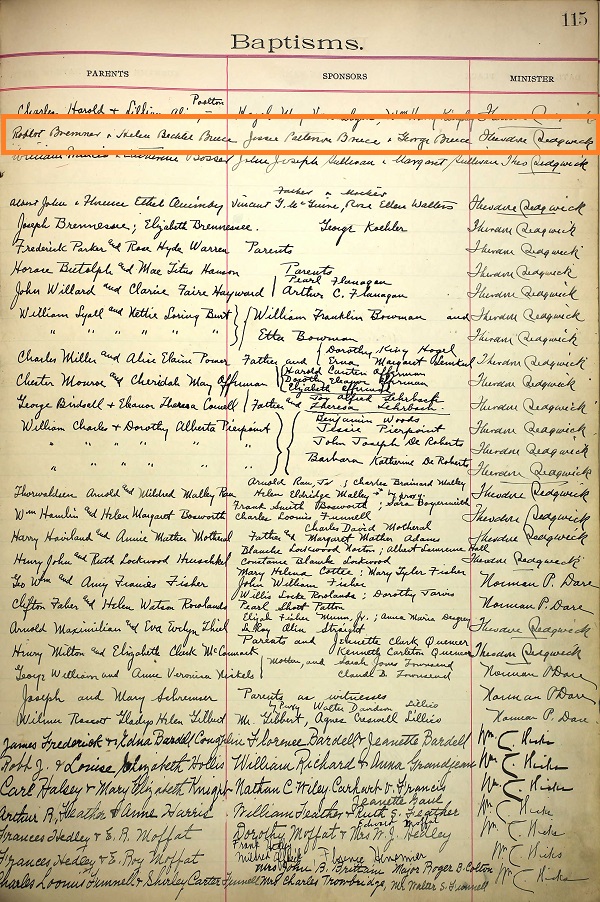 115
Baptisms.
PARENTS SPONSORS MINISTER
Charles Harold & Lillian Poolton
Robbt Bremner & Helen Bechtel Bruce Jessie Patterson Bruce & George Bruce Theodore Sedgwick
John Joseph Sullivan & Margaret Sullivan Theo Sedgwick
Father & Mother
John & Florence Ethel Vincent T. McGuire, Rose Ellen Walters Theodore Sedgwick
Joseph Brennessee; Elizabeth Brennessee. George Koehler Theodore Sedgwick
Frederick Parker and Rose Hyde Warren Parents Theodore Sedgwick
Horace Buttolph and Mae Titus Hanson Parents Theodore Sedgwick
Pearl Flanagan
John Willard and Clarise Faire Hayward Arthur C. Flanagan Theodore Sedgwick
William Lyall and Nettie Loring Burt William Franklin Bowman and Theodore Sedgwick
" " " " " " Etta Bowman Theodore Sedgwick
Dorothy King Hogel
Charles Miller and Alice Elaine Power Father and Erna Margaret Theodore Sedgwick
Harold Canten Offerman
Chester Monroe and Cheridah May Offerman Dorothy Eleanor Offerman Theodore Sedgwick
Elizabeth
Joy Alfred Lehrbach
George Birdsall & Eleanor Theresa Cowell Father and Theresa Lehrbach Theodore Sedgwick
Benjamin Woods
William Charles & Dorothy Alberta Pierpoint Tessie Pierpoint Theodore Sedgwick
" " " " John Joseph De Roberts Theodore Sedgwick
" " " " Barbara Katherine De Roberts Theodore Sedgwick
Arnold Rau, Jr; Charles Brainard Malley
Thorwaldsen Arnold and Mildred Malley Rau Helen Eldridge Malley by proxy Theodore Sedgwick
Frank Smith Bosworth; Sara
Wm Hamlin and Helen Margaret Bosworth Charles Loomis Funnell Theodore Sedgwick
Charles David Motheral
Harry Haviland and Annie Mather Motheral Father & Margaret Mather Adams Theodore Sedgwick
Blanche Lockwood Norton; Albert Laurence Hall
Henry John and Ruth Lockwood Heuschkel Constance Blanche Lockwood Theodore Sedgwick
Mary Helena Cotter; Mary Tyler Fisher
Geo Wm and Amy Frances Fisher John William Fisher Norman P. Dare
Willis Locke Roslands; Dorothy Jarvis
Clifton Faber and Helen Watson Roslands Pearl Shoot Patton Norman P. Dare
Elijah Fisher Munn, Jr.; Anna Marie
Arnold Maximilian and Eva Evelyn Thiel LeRoy Olin Straight Theodore Sedgwick
Parents and Jeanette Clark Quemer
Henry Milton and Elizabeth Clark McCormack Kenneth Carleton Quemer Theodore Sedgwick
George William and Annie Veronica Nickels Mother, and Sarah Jones Townsend Norman P Dare
Claude D. Townsend
Joseph and Mary Schreuer Parents as witnesses Norman P Dare
by Proxy Walter Davidson Lillis
Wilmer Roscot Gladys Helen Gilbert Mr. Gilbert, Agnes Creswell Lillis Norman P. Dare
James Frederick & Edna Bardell Florence Bardell & Jeanette Bardell Wm C Hicks
Robt J. & Louise Elizabeth Hollis William Richard & Anna Grandjean Wm C Hicks
Carl Halsey & Mary Elizabeth Knight Nathan C Wiley Carhart V. Francis Wm C Hicks
Jeanette Paul
Arthur R. Heather & Anne Harris William Feather & Ruth E. Feather Wm C Hicks
Edward Moffat
Frances Hedley & E. R. Moffat Dorothy Moffat & Mrs W. J. Hedley Wm C Hicks
Frank
Frances Hedley & E. Roy Moffat Mildred Wm C Hicks
Mrs John B. Brittain Major Roger B. Colton
Charles Loomis Funnell & Shirley Carter Funnell Mrs Charles Trowbridge, Mr. Walter S. Funnell Wm C Hicks